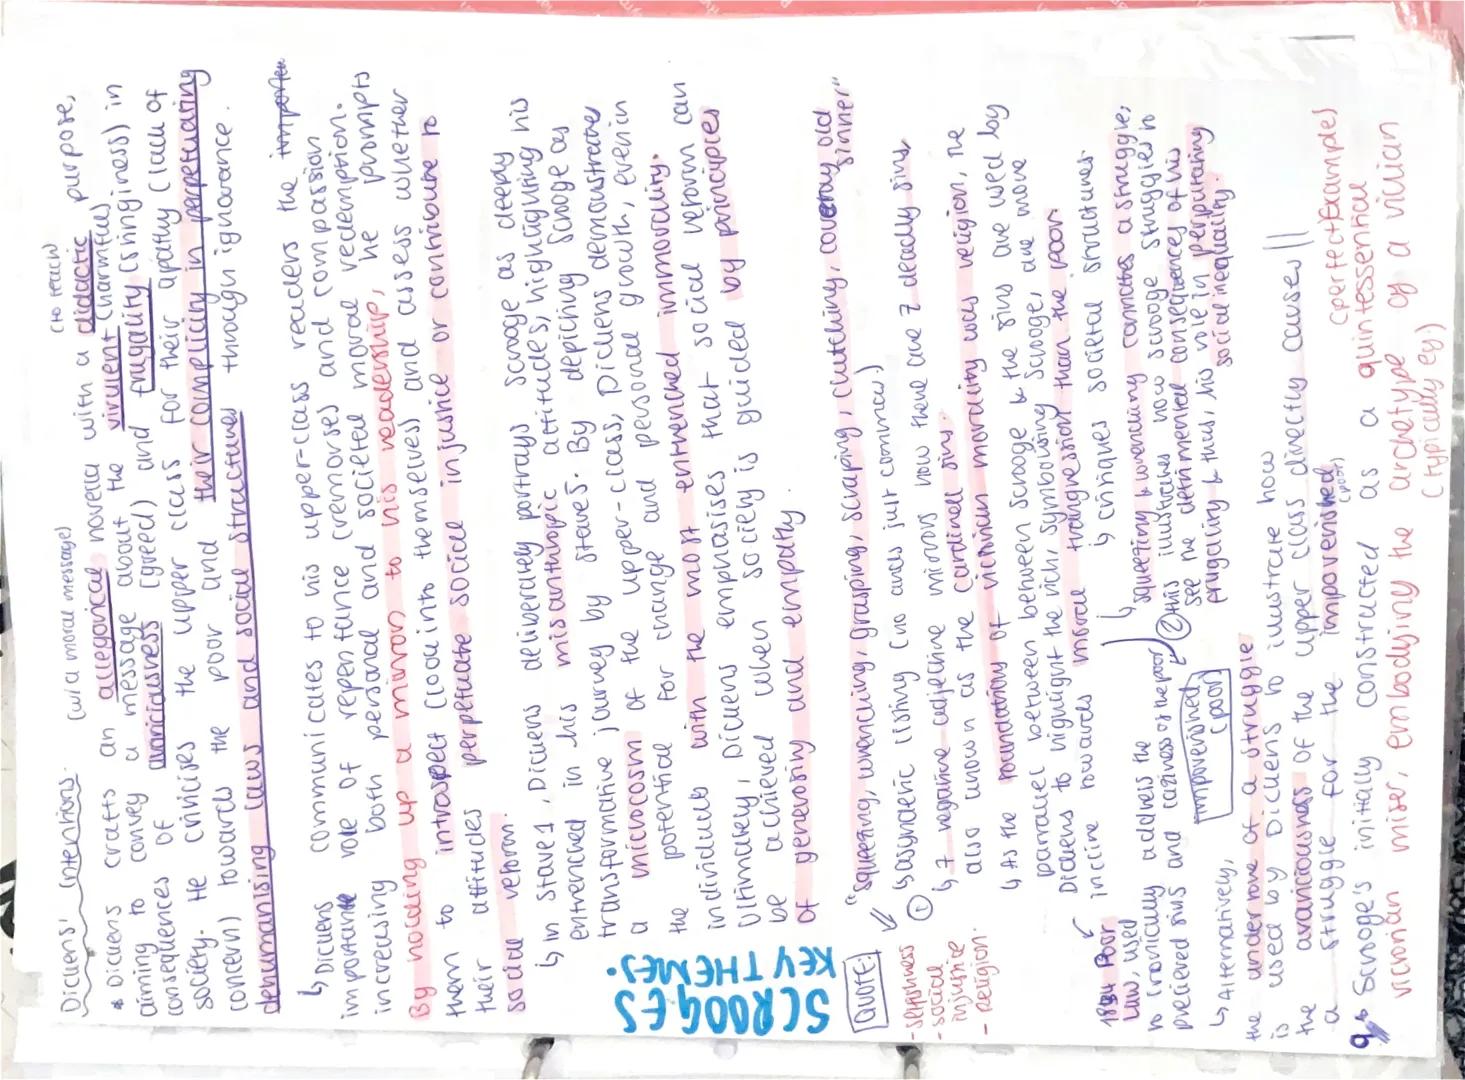 Dickens' intentions:
(w/ a moral message)
(to teach)
* Dickens crafts an allegorical novella with a didactic purpose,
aiming to convey a message about the virulent (harmful)
consequences of avariciousness (greed) and frugality (stinginess) in
society. He criticises the upper class for their apathy (lack of
concern) towards the poor and their complicity in perpetuating
dehumanising laws and social structures through ignorance.
↳ Dickens communicates to his upper-class readers the
important role of repentance (remorse) and compassion
increasing both personal and societal moral redemption.
By holding up a mirror to his readership, he prompts
them to introspect (look into themselves) and assess whether
their attitudes perpetuate social injustice or contribute to
social reform.
↳ In stave 1, Dickens deliberately portrays Scrooge as deeply
entrenched in his misanthropic attitudes, highlighting his
transformative journey by stave 5. By depicting Scrooge as
a microcosm of the upper-class, Dickens demonstrates
the potential for change and personal growth, even in
individuals with the most entrenched immorality.
Ultimately, Dickens emphasises that social reform can
be achieved when society is guided by principles
of generosity and empathy.
SCROOGES
KEY THEMES.
QUOTE:
"squeezing, wrenching, grasping, scraping, clutching, covetous, old
sinner"
- selfishness
- social
injustice
- religion.
① ↳ asyndetic listing (no ands just commas)
↳ 7 negative adjective mirrors how there are 7 deadly sins,
also known as the cardinal sins.
↳ As the foundation of victorian morality was religion, the
parallel between between Scrooge & the sins are used by
Dickens to highlight the rich, symbolising Scrooge, are more
incline towards immoral transgression than the poor.
↳ critiques societal structures.
1834 Poor
Law, used
to ironically address the
precieved sins and laziness of the poor
impoverished
(poor)
↳ squeezing & wrenching connotes a struggle,
② this illustrates how Scrooge struggles to
see the detrimental consequences of his
frugality & thus, his role in perpetuating
social inequality.
↳ Alternatively,
the undertone of a struggle
is used by Dickens to illustrate how
the avariciousness of the upper class directly causes
a struggle for the impoverished
(poor)
(perfect example)
Scrooge's initially constructed as a quintessential
victorian miser, embodying the archetype of a vician
(typically eg.)